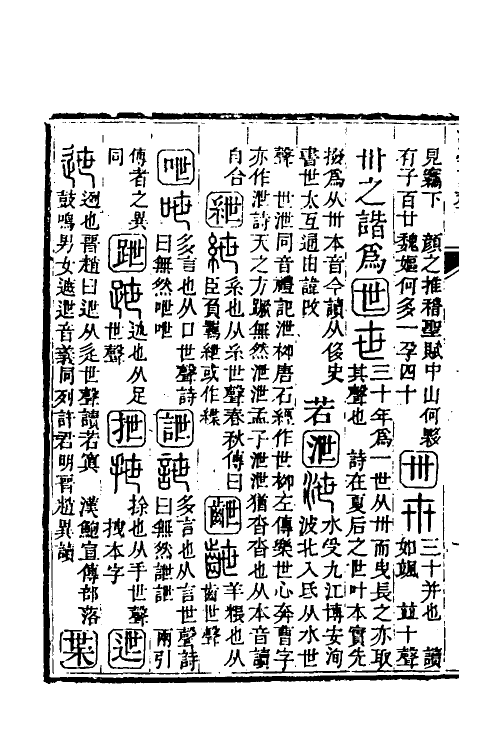 見竊下　顏之推稽聖賦中山何夥
有子百廿魏嫗何多一孕四十
卅 卅 三十并也　讀
如颯　並十聲
卅之諧爲世 世 三十年爲一世从卅而曳長之亦取
其聲也　詩在夏后之世叶本實先
撥爲从卅本音今讀从俊史
書世太互通由諱改
若泄 泄 水受九江博安洵
波北入氐从水世
聲　世泄同音禮記泄柳唐石經作世柳左傳樂世心奔曹字
亦作泄詩天之方蹶無然泄泄孟子泄泄猶沓沓也从本音讀
自合
紲 紲 系也从糸世聲春秋傳曰
臣負羈紲或作緤
齛 齛 羊粻也从
齒世聲
呭 呭 多言也从口世聲詩
曰無然呭呭
詍 詍 多言也从言世聲詩
曰無然詍詍　兩引
傳者之異
同
跇 跇 述也从足
世聲
抴 抴 捈也从手世聲
拽本字
迣
迣 迾也晉趙曰迣从辵世聲讀若寘　漢鮑宣傳部落
鼓鳴男女遮迣音義同列許君明晉趙異讀
枼